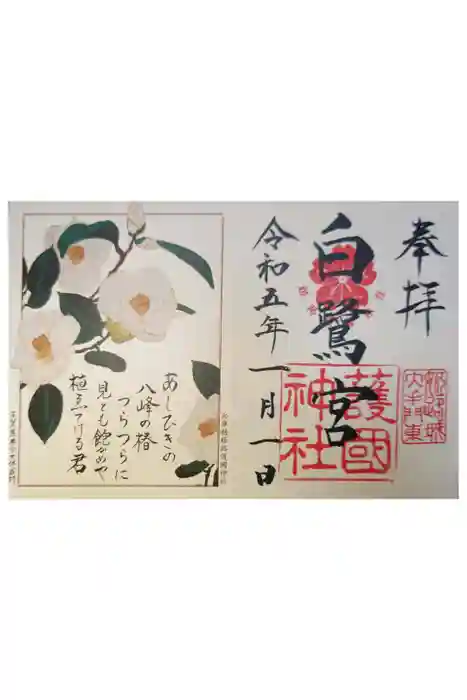 奉拝
白鷺宮
護國
神社
姫路城
大手門東
令和五年一月一日
あしびきの
八峰の椿
つらつらに
見とも飽かめや
植ゑてける君
兵庫縣姫路護國神社